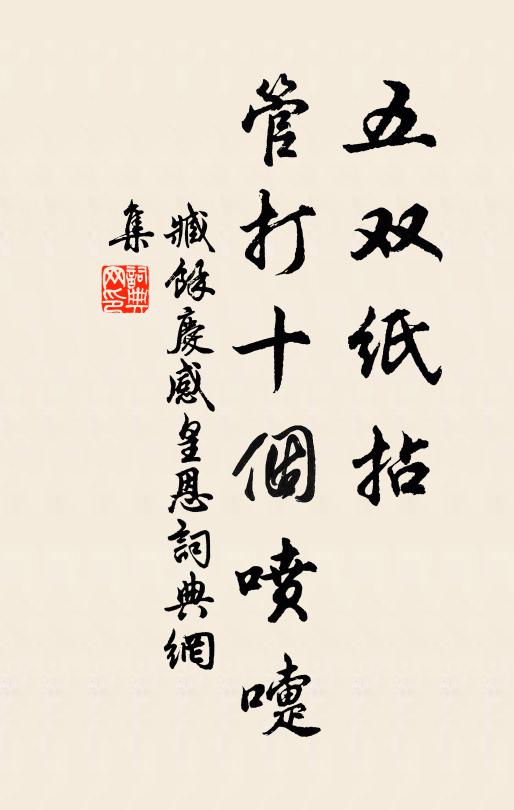 五双纸拈
管打十個噴嚏
臧餘慶感皇恩詞典網
集
詞典
网印